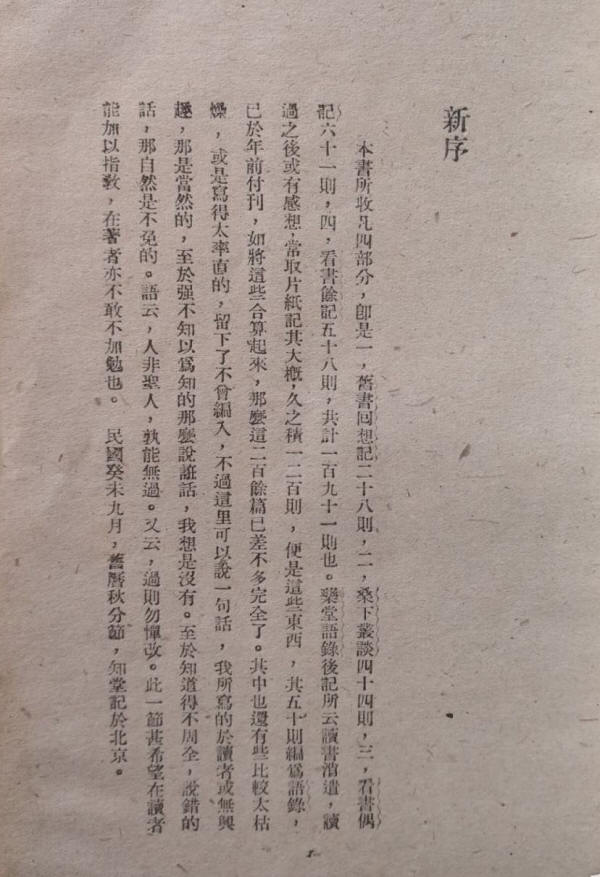 新序
本書所收凡四部分，卽是一，舊書回想記二十八則，二，桑下叢談四十四則，三，看書偶
記六十一則，四，看書餘記五十八則，共計一百九十一則也。藥堂語錄後記所云讀書消遣，讀
過之後或有感想，常取片紙記其大槪，久之積一二百則，便是這些東西，其五十則編爲語錄，
已於年前付刊，如將這些合算起來，那麼這二百餘篇已差不多完全了。其中也還有些比較太枯
燥，或是寫得太率直的，留下了不曾編入，不過這里可以說一句話，我所寫的於讀者或無興
趣，那是當然的，至於强不知以爲知的那麼說誑話，我想是沒有。至於知道得不周全，說錯的
話，那自然是不免的。語云，人非聖人，孰能無過。又云，過則勿憚改。此一節甚希望在讀者
能加以指敎，在著者亦不敢不加勉也。　民國癸未九月，舊曆秋分節，知堂記於北京。
1